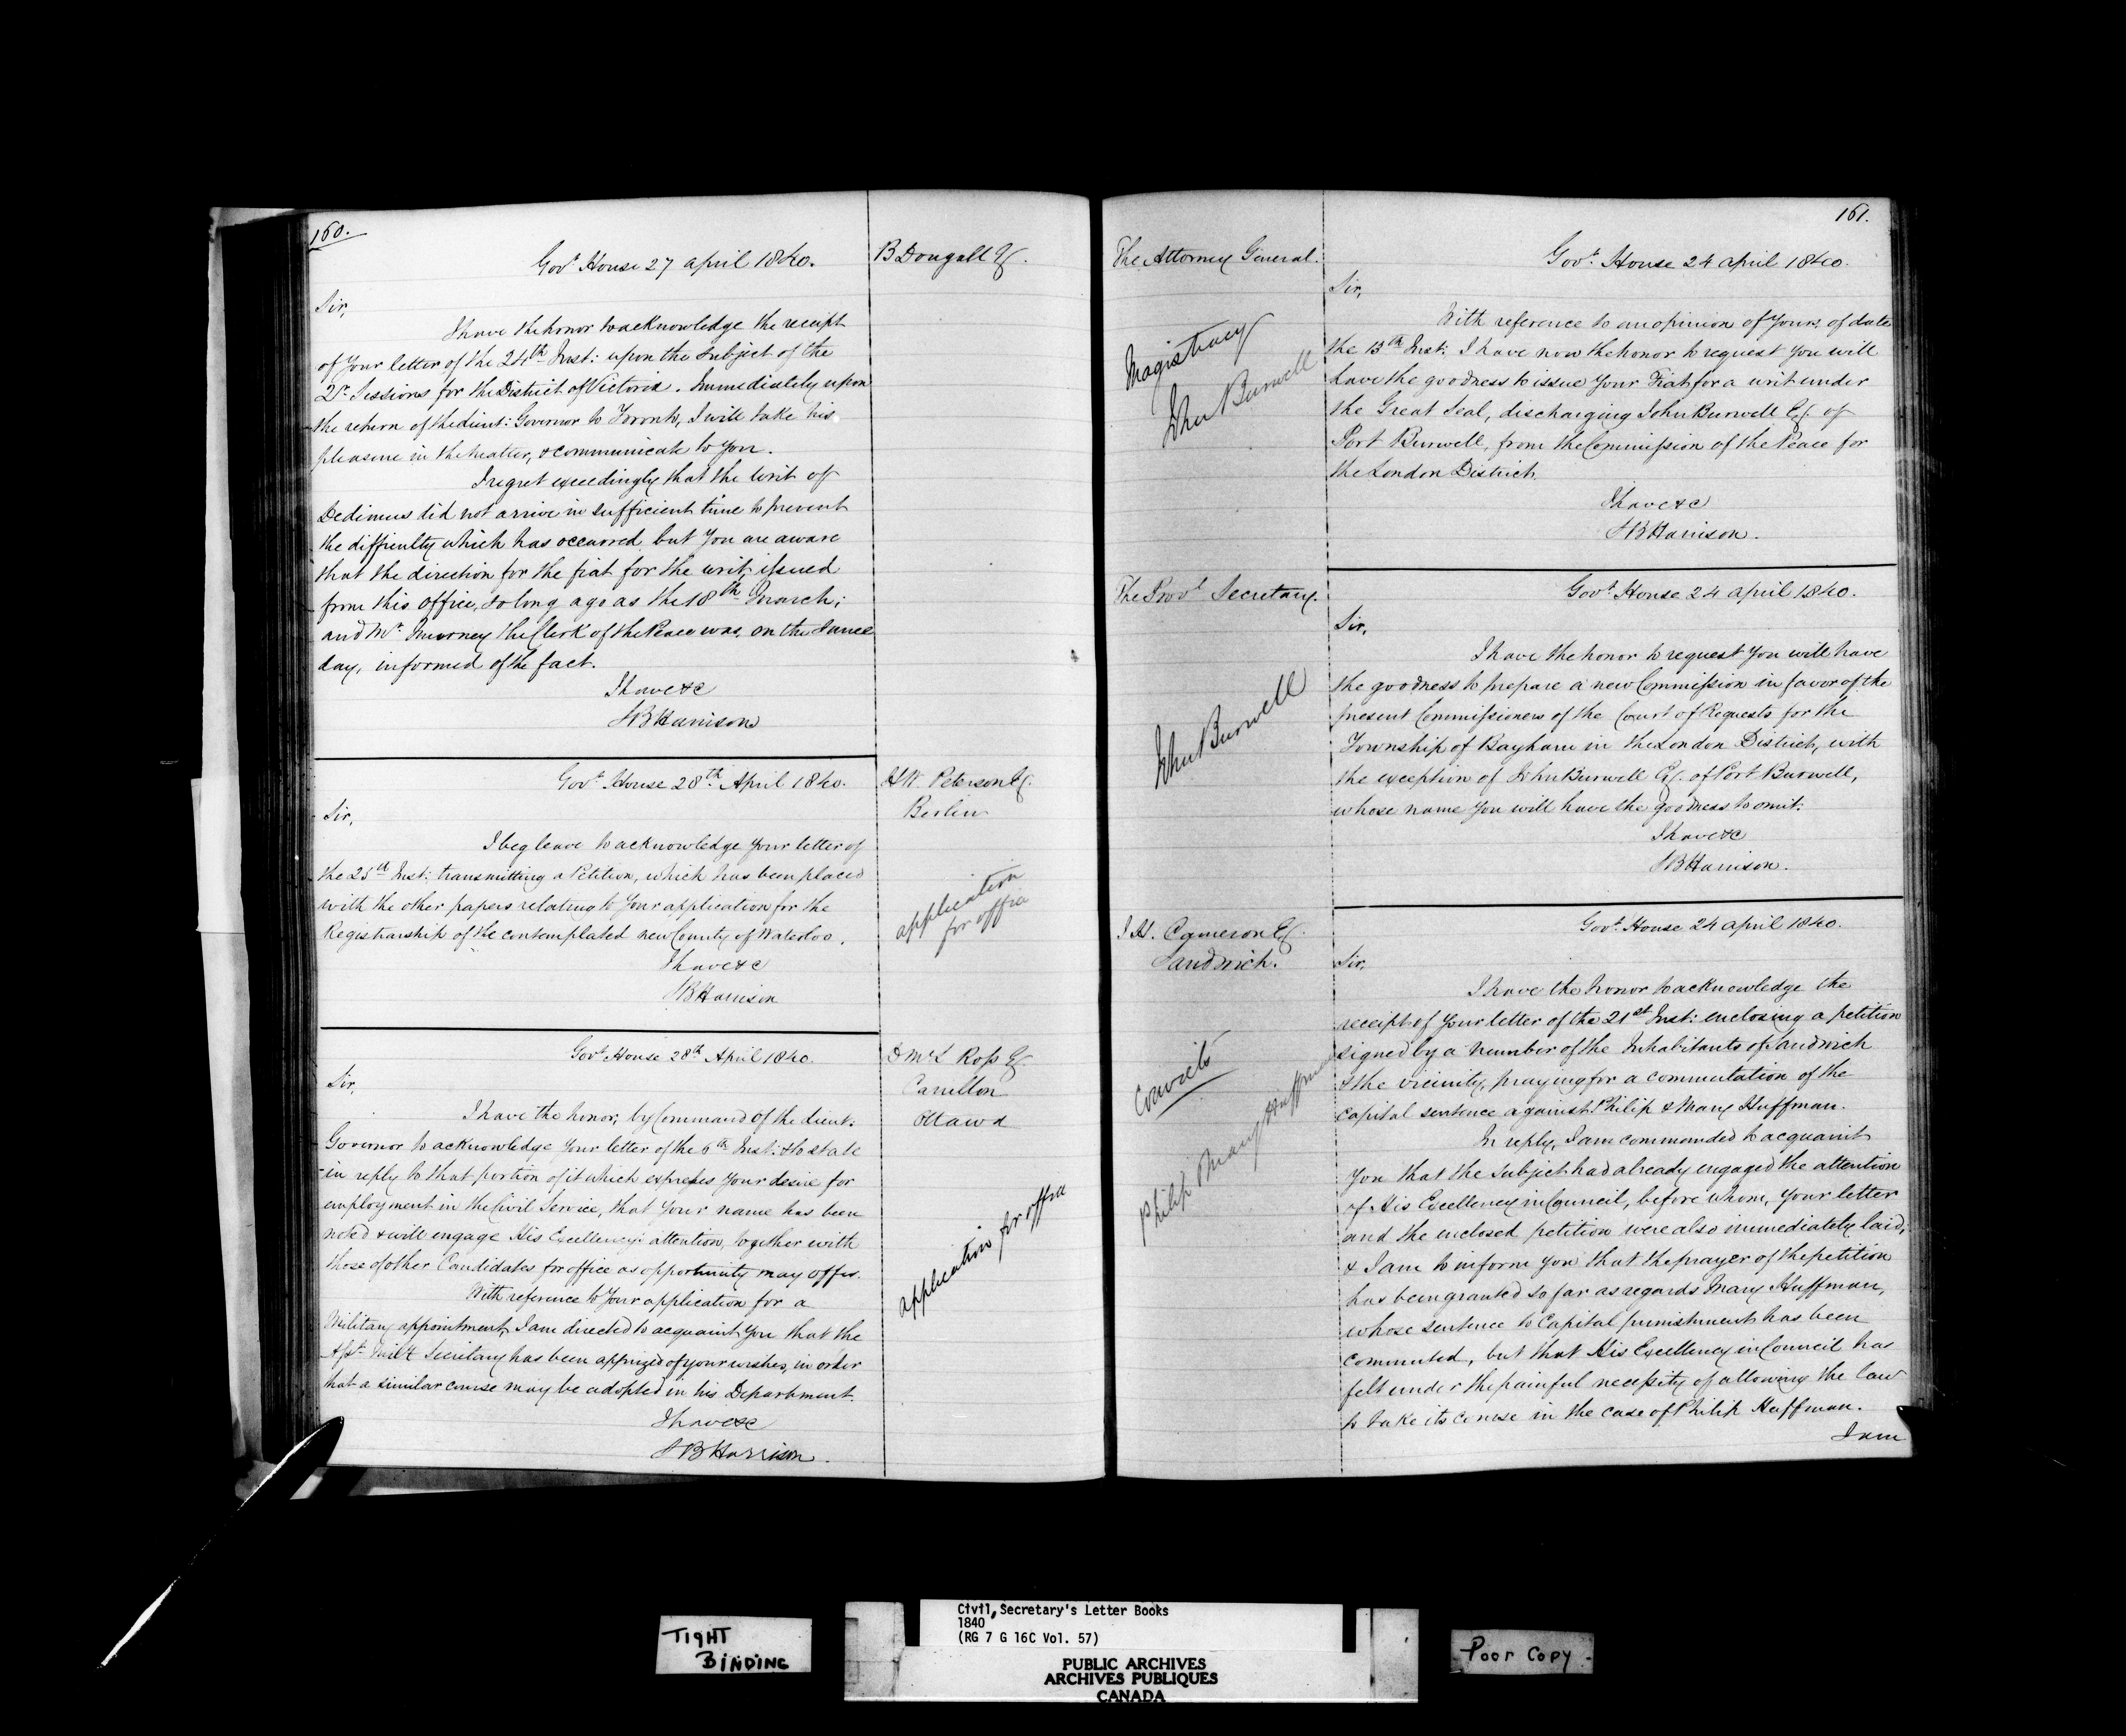 160.
Govt. House 27 april 1840.
B Dougall Esq.
Sir,
I have the honor to acknowledge the receipt
of Your letter of the 24th Inst: upon the subject of the
Qr Sessions for the District of Victoria. Immediately upon
the return of the Lieut: Governor to Toronto, I will take his
pleasure in the matter, & communicate to You.
I regret exceedingly that the writ of
Dedimus did not arrive in sufficient time to prevent
the difficulty which has occurred but You are aware
that the direction for the fiat for the writ, issued
from this Office, so long ago as the 18th March;
and Mr. the Clerk of the Peace was, on the same
day, informed of the fact.
I have &c
SB Harrison
Govt. House 28th. April 1840.
HW. Peterson Esq.
Berlin
Sir,
I beg leave to acknowledge Your letter of
the 25th Inst: transmitting a Petition, which has been placed
with the other papers relating to Your application for the
Registrarship of the contemplated new County of Waterloo.
application
for office
I have &c
SB Harrison
Govt. House 28th April 1840.
D McL Ross Esq.
Carillon
Ottawa
Sir,
I have the honor, by Command of the Lieut:
Governor to acknowledge Your letter of the 6th Inst: & to state
in reply to that portion of it which expresses Your desire for
employment in the Civil Service, that Your name has been
noted & will engage His Excellency's attention, together with
those of other Candidates for office as opportunity may offer.
application for office
With reference to Your application for a
Military appointment, I am directed to acquaint You that the
Asst. Milty Secretary has been apprized of your wishes, in order
that a similar course may be adopted in his Department.
I have &c
SB Harrison.
161.
The Attorney General.
Govt. House 24 april 1840.
Sir,
With reference to an opinion of Yours, of date
the 13th Inst: I have now the honor to request You will
have the goodness to issue Your Fiat for a writ under
the Great Seal, discharging John Burwell Esq. of
Port Burwell, from the Commission of the Peace for
the London District.
Magistracy
John Burwell
I have &c
SB Harrison.
The Provl Secretary.
Govt. House 24 april 1840.
Sir,
I have the honor to request You will have
the goodness to prepare a new Commission in favor of the
present Commissioners of the Court of Requests for the
Township of Bayham in the London District, with
the exception of John Burwell Esq. of Port Burwell,
whose name You will have the goodness to omit.
John Burwell
I have &c
SB Harrison.
J H. Cameron Esq.
Sandwich.
Govt. House 24 april 1840.
Sir,
I have the honor to acknowledge the
receipt of Your letter of the 21st Inst: enclosing a petition
signed by a number of the Inhabitants of Sandwich
& the vicinity, praying for a commutation of the
capital sentence against Philip & Mary Huffman.
Convicts
Philip Mary Huffman
In reply, I am commanded to acquaint
You that the subject had already engaged the attention
of His Excellency in Council, before whom, Your letter
and the enclosed petition were also immediately laid,
& I am to inform You that the prayer of the petition
has been granted so far as regards Mary Huffman,
whose sentence to Capital punishment has been
commuted, but that His Excellency in Council has
felt under the painful necessity of allowing the law
to take its course in the case of Philip Huffman.
I am
TIGHT
BINDING
Civil Secretary's Letter Books
1840
(RG 7 G 16C Vol. 57)
PUBLIC ARCHIVES
ARCHIVES PUBLIQUES
CANADA
Poor Copy